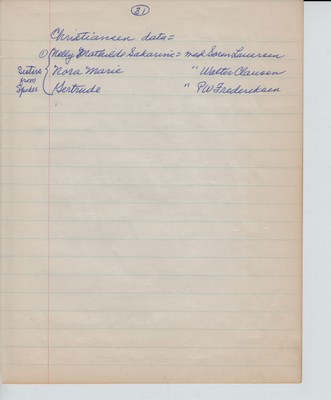 31
Christiansen data =
① Nelly Mathilde Sakarine = med Soren Laursen
Sisters from Spiker { Nora Marie " Walter Clausen
Gertrude " PW Frederiksen